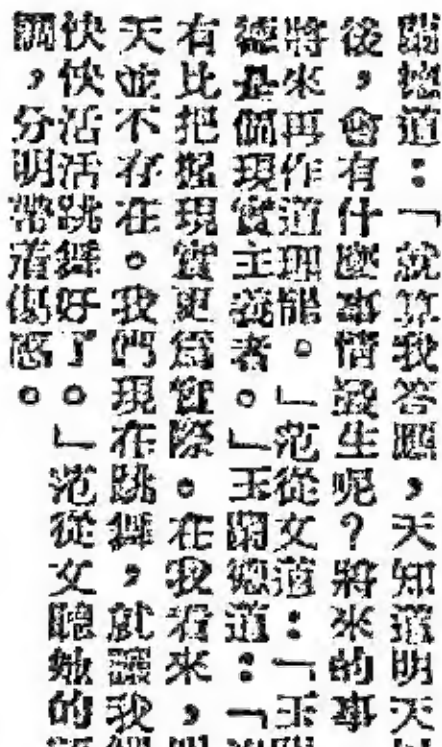 道：「就算我答應，天知道明天
後，會有什麼事情發生呢？將來的事
將來再作道理罷。」范從文道：「玉
德是個現實主義者。」玉德道：「
有比把握現實更爲實際。在我看來，
天並不存在。我們現在跳舞，就讓我
快快活活跳舞好了。」范從文聽她的
調，分明帶着傷感。